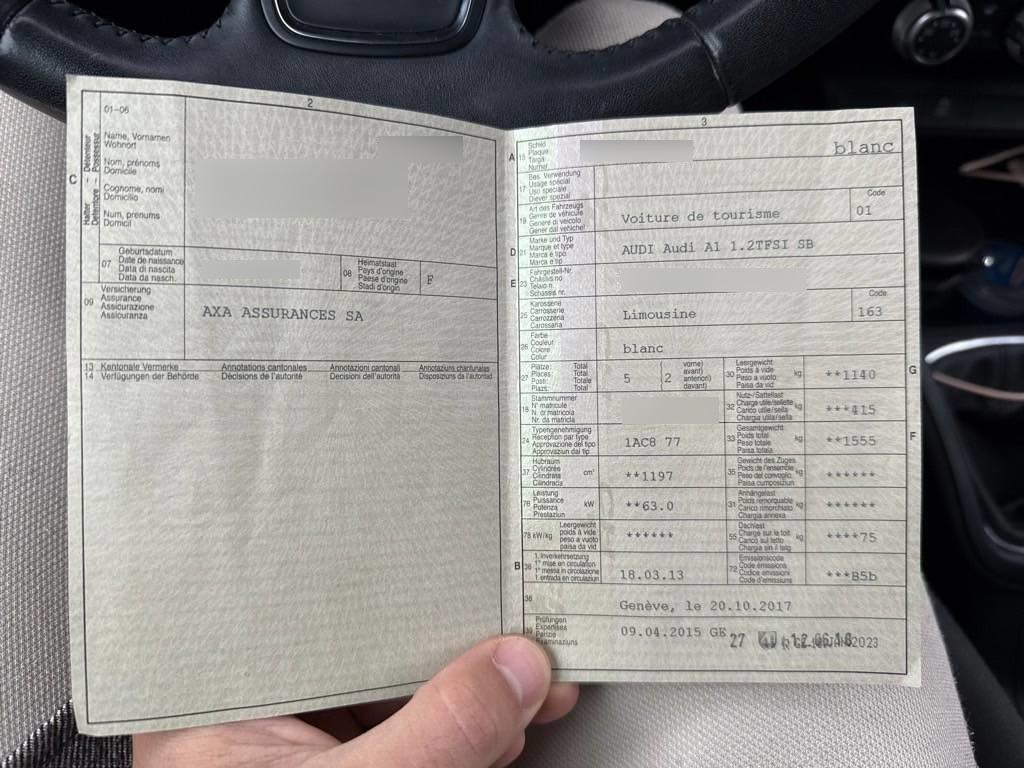 2
01-06
C
Halter – Détenteur
Detentore – Possessur
Name, Vornamen
Wohnort
Nom, prénoms
Domicile
Cognome, nomi
Domicilio
Num, prenums
Domicil
07
Geburtsdatum
Date de naissance
Data di nascita
Data da nasch.
08
Heimatstaat
Pays d'origine
Paese d'origine
Stadi d'origin
F
09
Versicherung
Assurance
Assicurazione
Assicuranza
AXA ASSURANCES SA
13 Kantonale Vermerke Annotations cantonales Annotazioni cantonali Annotaziuns chantunalas
14 Verfügungen der Behörde Décisions de l'autorité Decisioni dell'autorità Disposiziuns da l'autoritad
3
A 15
Schild
Plaque
Targa
Numer
blanc
17
Bes. Verwendung
Usage spécial
Uso speciale
Diever spezial
19
Art des Fahrzeugs
Genre de véhicule
Genere di veicolo
Gener dal vehichel
Voiture de tourisme
Code
01
D 21
Marke und Typ
Marque et type
Marca e tipo
Marca e tip
AUDI Audi A1 1.2TFSI SB
E 23
Fahrgestell-Nr.
Châssis no
Telaio n.
Schassis nr.
25
Karosserie
Carrosserie
Carrozzeria
Carossaria
Limousine
Code
163
26
Farbe
Couleur
Colore
Colur
blanc
27
Plätze: Total
Places: Total
Posti: Totale
Plazs: Total
5
2
vorne)
avant)
anteriori)
davant)
30
Leergewicht
Poids à vide
Peso a vuoto
Paisa da vid
kg
**1140
G
18
Stammnummer
N° matricule
N. di matricola
Nr. da matricla
32
Nutz-/Sattellast
Charge utile/sellette
Carico utile/sella
Chargia utila/sella
kg
***415
24
Typengenehmigung
Réception par type
Approvazione del tipo
Approvaziun dal tip
1AC8 77
33
Gesamtgewicht
Poids total
Peso totale
Paisa totala
kg
**1555
F
37
Hubraum
Cylindrée
Cilindrata
Cilindrada
cm³
**1197
35
Gewicht des Zuges
Poids de l'ensemble
Peso del convoglio
Paisa cumposiziun
kg
******
76
Leistung
Puissance
Potenza
Prestaziun
kW
**63.0
31
Anhängelast
Poids remorquable
Carico rimorchiato
Chargia annexa
kg
******
78 kW/kg
Leergewicht
poids à vide
peso a vuoto
paisa da vid
******
55
Dachlast
Charge sur le toit
Carico sul tetto
Chargia sin il tetg
kg
****75
B 36
1. Inverkehrsetzung
1re mise en circulation
1a messa in circolazione
1. entrada en circulaziun
18.03.13
72
Emissionscode
Code émissions
Codice emissioni
Code d'emissiuns
***B5b
38
Genève, le 20.10.2017
39
Prüfungen
Expertises
Perizie
Examinaziuns
09.04.2015 GE
27
2023